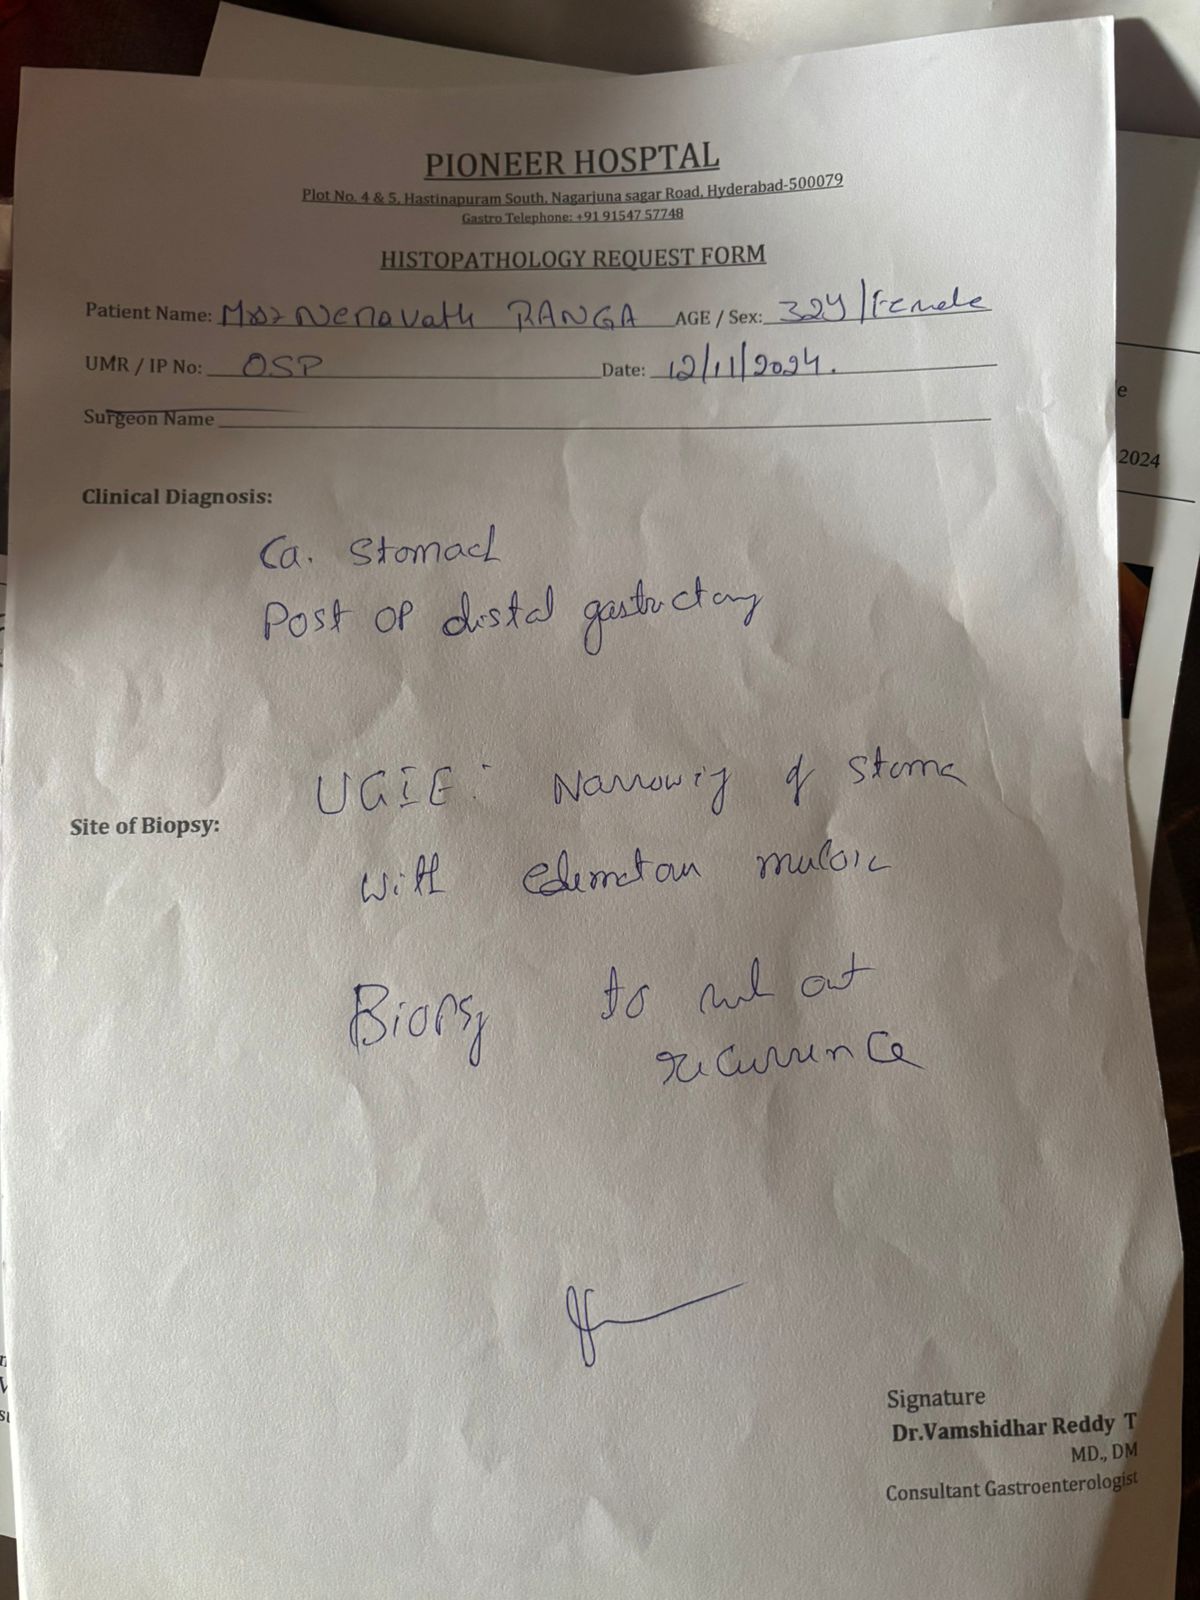 PIONEER HOSPTAL
Plot No. 4 & 5, Hastinapuram South, Nagarjuna sagar Road, Hyderabad-500079
Gastro Telephone: +91 91547 57748
HISTOPATHOLOGY REQUEST FORM
Patient Name: Nenavath RANGA AGE / Sex: 32Y/Female
UMR / IP No: OSP Date: 12/11/2024.
Surgeon Name
e
2024
Clinical Diagnosis:
Ca. Stomach
Post OP distal gastrectomy
UGIE: Narrowing of stoma
Site of Biopsy:
with edematous mucosa
Biopsy to rule out
recurrence
Signature
Dr.Vamshidhar Reddy T
MD., DM
Consultant Gastroenterologist